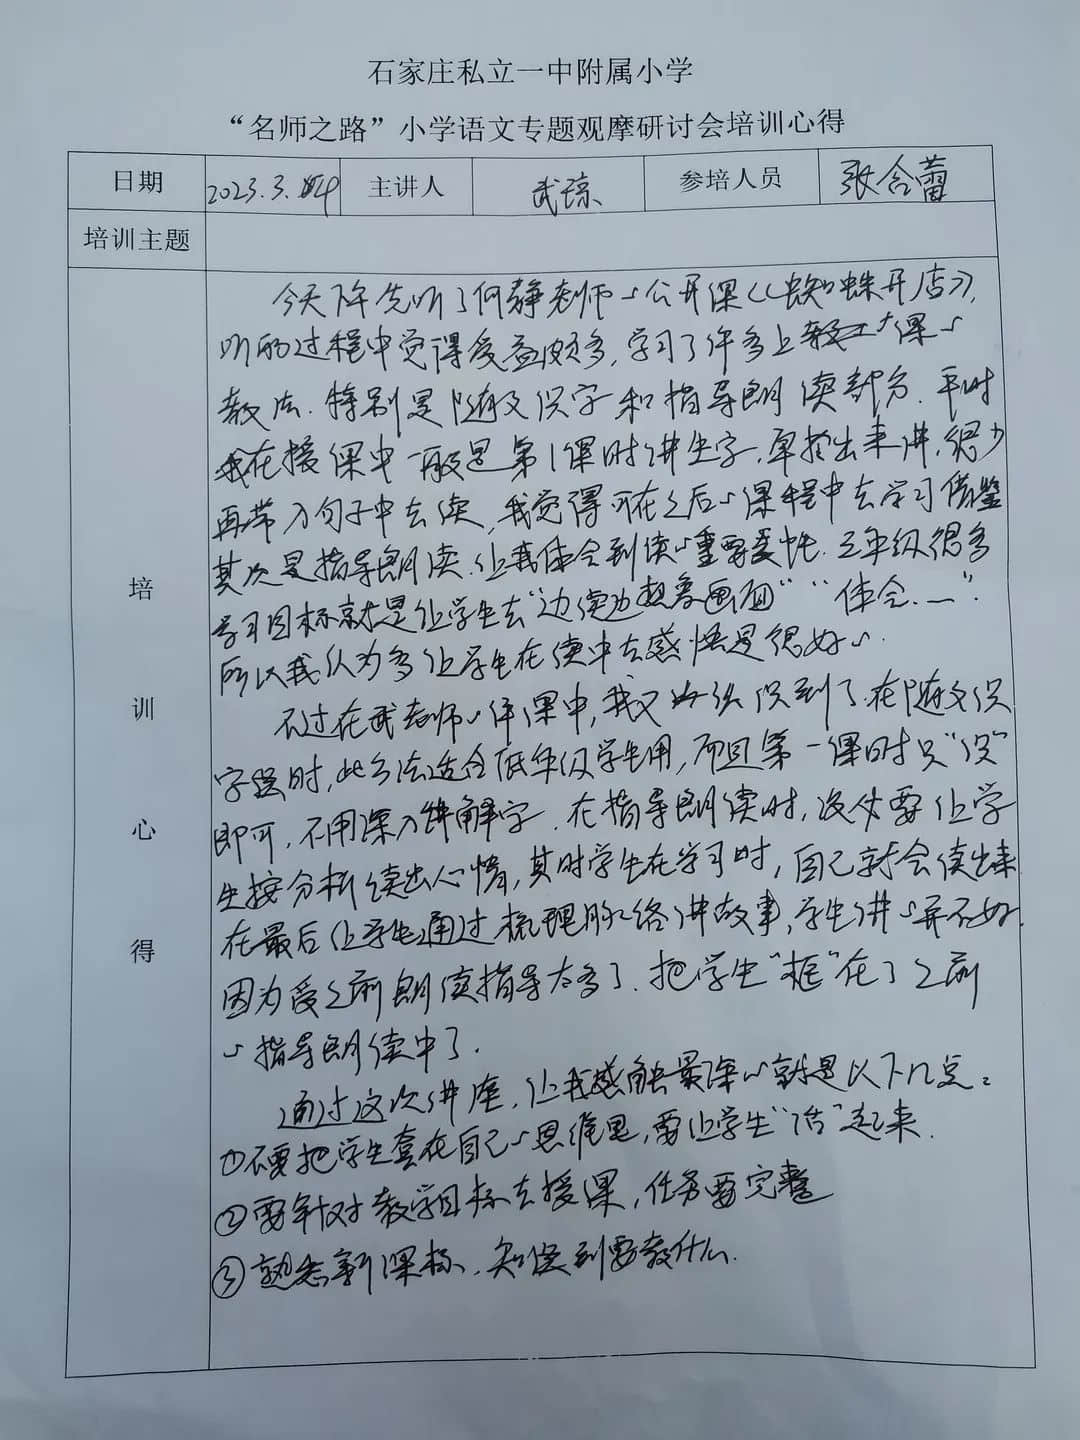 石家庄私立一中附属小学
“名师之路”小学语文专题观摩研讨会培训心得
日期 2023.3.4 主讲人 武琼 参培人员 张含蕾
培训主题
培训心得
今天下午先听了何静老师的公开课《蜘蛛开店》，
听的过程中觉得受益颇多，学习了许多上课的
教法。特别是随文识字和指导朗读部分。平时
我在授课中一般是第1课时讲生字，单拎出来讲，很少
再带入句子中去读，我觉得可在之后的课程中去学习借鉴
其次是指导朗读，让我体会到读的重要性。三年级很多
学习目标就是让学生去“边读边想象画面”“体会……”.
所以我认为多让学生在读中去感悟是很好的.
不过在武老师的评课中，我又认识到了在随文识
字时，此方法适合低年级学生用，而且第一课时只“识”
即可，不用深入讲解字。在指导朗读时，没必要让学
生按分析读出心情，其时学生在学习时，自己就会读出来
在最后让学生通过梳理脉络讲故事，学生讲的并不好.
因为受之前朗读指导太多了.把学生“框”在了之前
的指导朗读中了.
通过这次讲座，让我感触最深的就是以下几点：
①不要把学生套在自己的思维里，要让学生“活”起来.
②要针对教学目标去授课，任务要完整
③熟悉新课标，知道到要教什么.